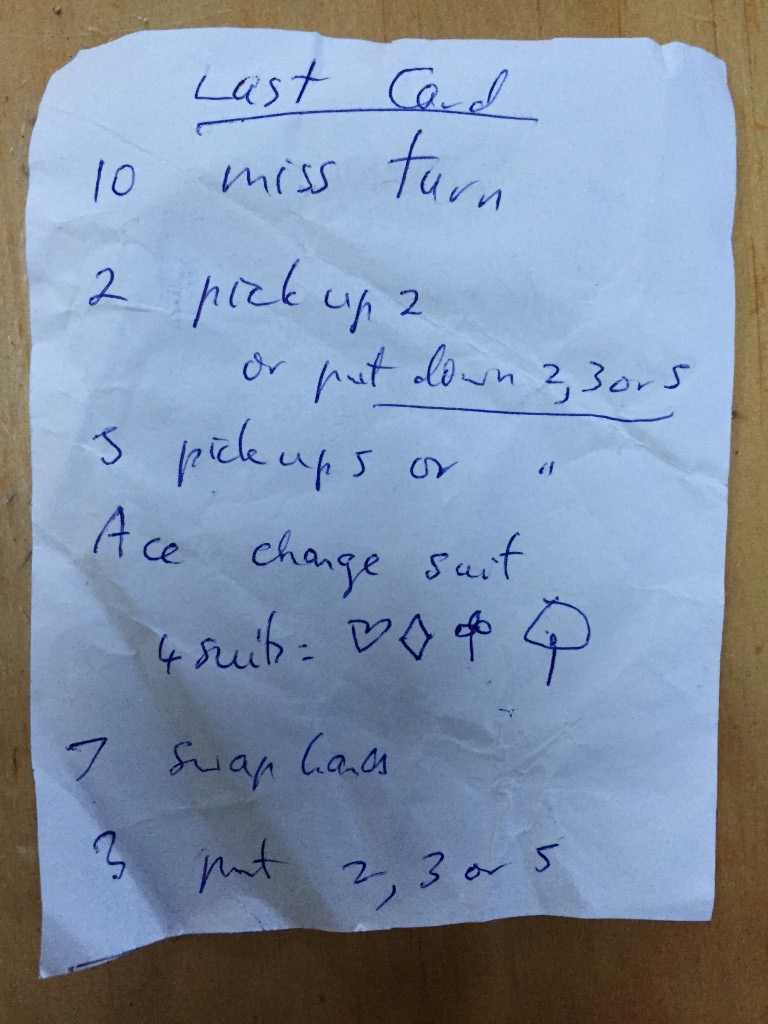 Last Card
10 miss turn
2 pick up 2
or put down 2, 3 or 5
5 pick up 5 or "
Ace change suit
4 suits = ♡ ◇ ♧ ♤
7 swap hands
3 put 2, 3 or 5